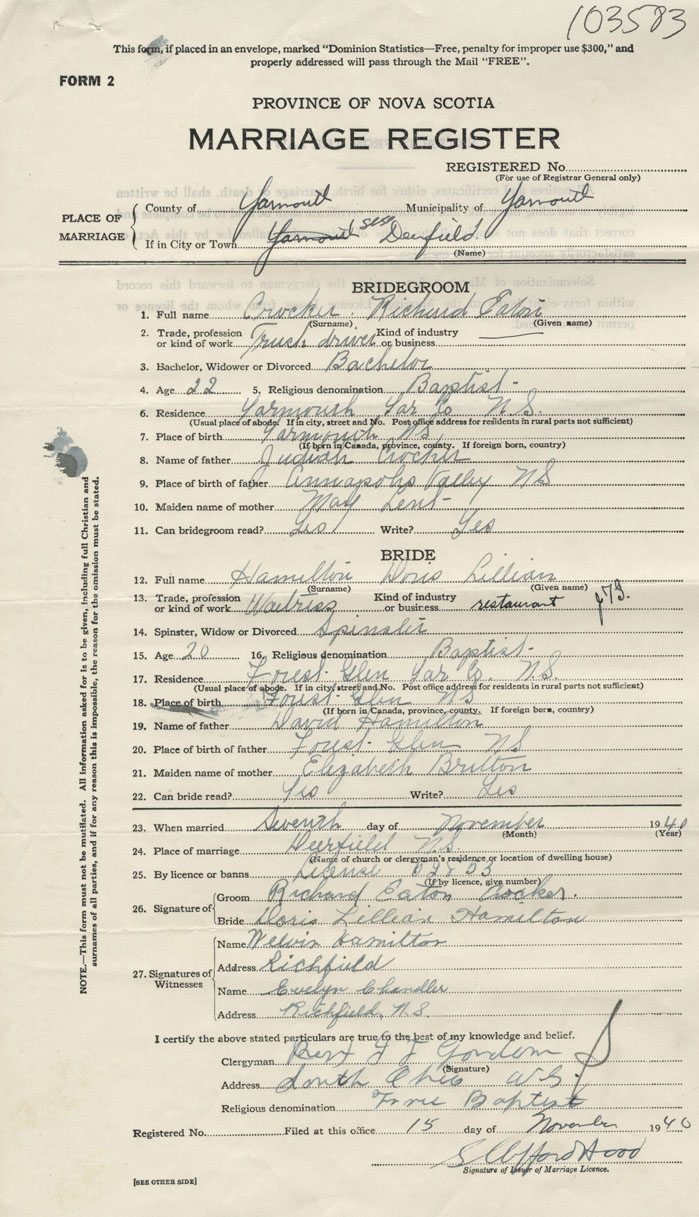 103583
This form, if placed in an envelope, marked "Dominion Statistics—Free, penalty for improper use $300," and
properly addressed will pass through the Mail "FREE".
FORM 2
PROVINCE OF NOVA SCOTIA
MARRIAGE REGISTER
REGISTERED No.
(For use of Registrar General only)
PLACE OF MARRIAGE
County of Yarmouth Municipality of Yarmouth
If in City or Town Yarmouth Deerfield
(Name)
BRIDEGROOM
1. Full name Crocker Richard Eaton
(Surname) (Given name)
2. Trade, profession or kind of work Truck driver Kind of industry or business
3. Bachelor, Widower or Divorced Bachelor
4. Age 22 5. Religious denomination Baptist
6. Residence Yarmouth Yar Co N.S.
(Usual place of abode. If in city, street and No. Post office address for residents in rural parts not sufficient)
7. Place of birth Yarmouth NS
(If born in Canada, province, county. If foreign born, country)
8. Name of father Judiah Crocker
9. Place of birth of father Annapolis Valley NS
10. Maiden name of mother May Lent
11. Can bridegroom read? Yes Write? Yes
BRIDE
12. Full name Hamilton Doris Lillian
(Surname) (Given name)
13. Trade, profession or kind of work Waitress Kind of industry or business restaurant
14. Spinster, Widow or Divorced Spinster
15. Age 20 16. Religious denomination Baptist
17. Residence Forest Glen Yar Co. NS
(Usual place of abode. If in city, street and No. Post office address for residents in rural parts not sufficient)
18. Place of birth Forest Glen NS
(If born in Canada, province, county. If foreign born, country)
19. Name of father David Hamilton
20. Place of birth of father Forest Glen NS
21. Maiden name of mother Elizabeth Britton
22. Can bride read? Yes Write? Yes
23. When married Seventh day of November 1940
(Month) (Year)
24. Place of marriage Deerfield N.S.
(Name of church or clergyman's residence or location of dwelling house)
25. By licence or banns License 02803
(If by licence, give number)
26. Signature of
Groom Richard Eaton Crocker.
Bride Doris Lillian Hamilton
27. Signatures of Witnesses
Name Melvin Hamilton
Address Richfield
Name Evelyn Chandler
Address Richfield, N.S.
I certify the above stated particulars are true to the best of my knowledge and belief.
Clergyman Gordon
(Signature)
Address South Ohio N.S.
Religious denomination Free Baptist
Registered No. Filed at this office 15 day of November 1940
S Clifford Hood
Signature of Issuer of Marriage Licence.
[SEE OTHER SIDE]
NOTE.—This form must not be mutilated. All information asked for is to be given, including full Christian and
surnames of all parties, and if for any reason this is impossible, the reason for the omission must be stated.